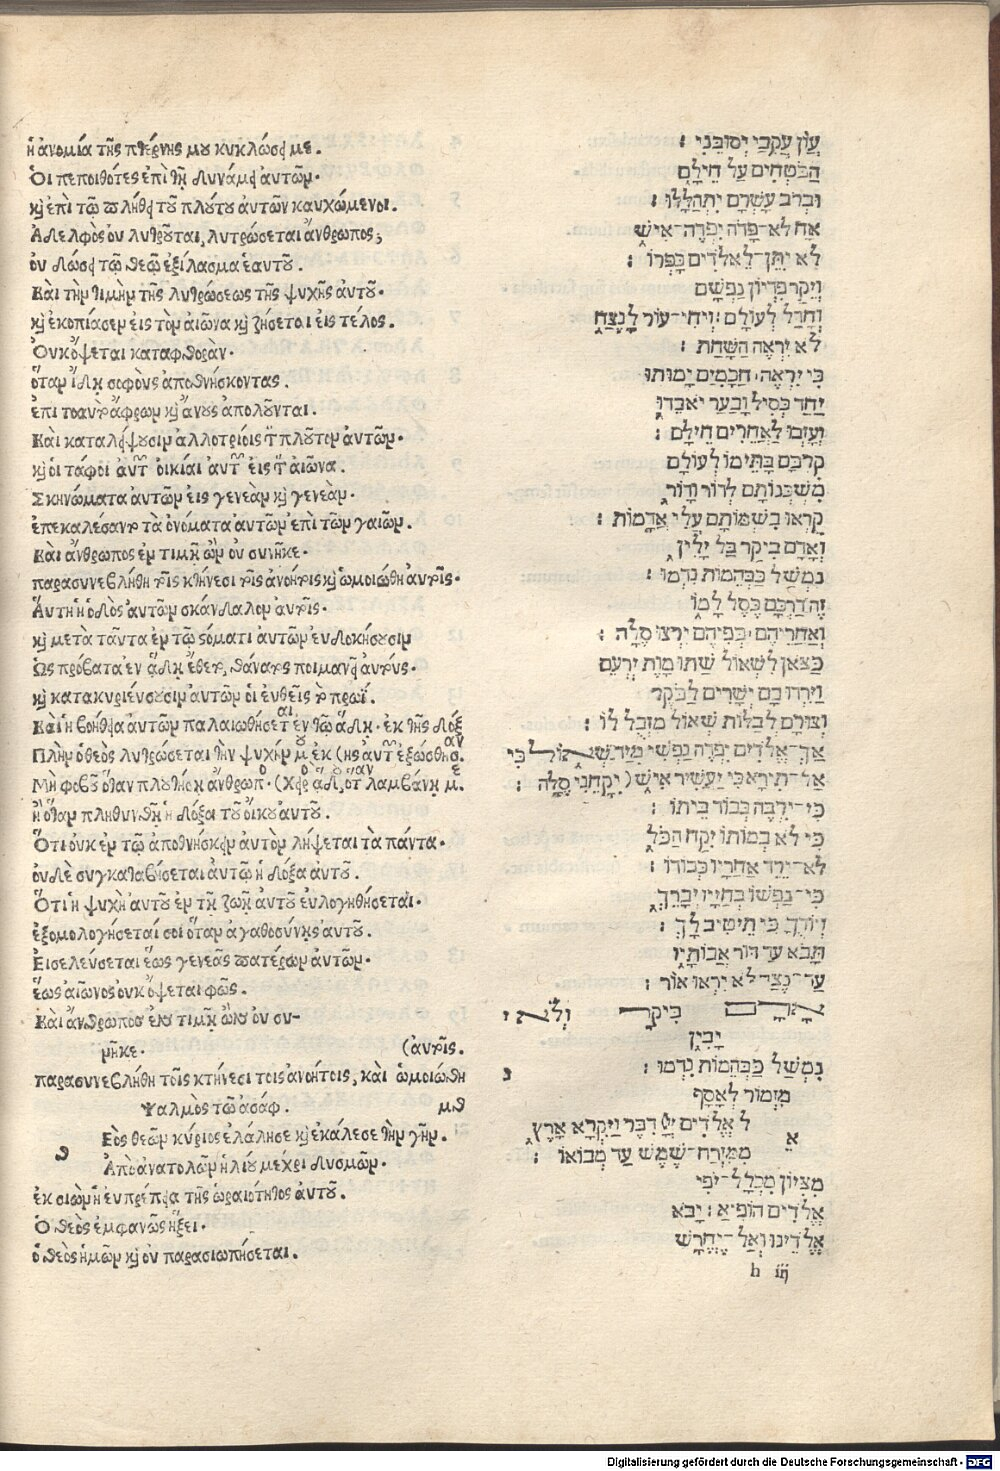 ἡ ἀνομία τῆς πτέρνης μου κυκλώσει με.
Ὁι πεποιθότες ἐπὶ τῇ δυνάμει ἀυτῶν.
καὶ ἐπὶ τῷ πλήθει τοῦ πλούτου ἀυτῶν καυχώμενοι.
Ἀδελφὸς ὀυ λυτροῦται, λυτρώσεται ἄνθρωπος;
ὀυ δώσει τῷ θεῷ ἐξίλασμα ἑαυτοῦ.
Καὶ τὴν τιμὴν τῆς λυτρώσεως τῆς ψυχῆς ἀυτοῦ.
καὶ ἐκοπίασεν ἐις τὸν αἰῶνα καὶ ζήσεται ἐις τέλος.
Ὀυκ ὄψεται καταφθοράν.
ὅταν ἴδῃ σοφοὺς ἀποθνήσκοντας.
ἐπὶ τοαυτὸ ἄφρων καὶ ἄνους ἀπολοῦνται.
Καὶ καταλείψουσιν ἀλλοτρίοις τὸν πλοῦτον ἀυτῶν.
καὶ ὁι τάφοι ἀυτῶν ὀικίαι ἀυτῶν ἐις τὸν ἀιῶνα.
Σκηνώματα ἀυτῶν ἐις γενεὰν καὶ γενεάν.
ἐπεκαλέσαντο τὰ ὀνόματα ἀυτῶν ἐπὶ τῶν γαιῶν.
Καὶ ἄνθρωπος ἐν τιμῇ ὢν ὀυ συνῆκε.
παρασυνεβλήθη τοῖς κτήνεσι τοῖς ἀνοήτοις καὶ ὡμοιώθη ἀυτοῖς.
Ἅυτη ἡ ὁδὸς ἀυτῶν σκάνδαλον ἀυτοῖς.
καὶ μετὰ ταῦτα ἐν τῷ στόματι ἀυτῶν ἐυδοκήσουσιν
Ὡς πρόβατα ἐν ᾅδῃ ἔθεντο, θάνατος ποιμανεῖ ἀυτούς.
καὶ κατακυριέυσουσιν ἀυτῶν ὁι ἐυθεῖς τὸ πρωΐ.
Καὶ ἡ βοήθεια ἀυτῶν παλαιωθήσεται ἐν τῷ ᾅδῃ. ἐκ τῆς δόξ
Πλὴν ὁ θεὸς λυτρώσεται τὴν ψυχήν μου ἐκ (ης ἀυτῶν ἐξώσθησαν.
Μὴ φοβοῦ ὅταν πλουτήσῃ ἄνθρωπος. (χειρὸς ᾅδου, ὅταν λαμβάνῃ με.
ἢ ὅταν πληθυνθῇ ἡ δόξα τοῦ ὄικου ἀυτοῦ.
Ὅτι ὀυκ ἐν τῷ ἀποθνήσκειν ἀυτὸν λήψεται τὰ πάντα.
ὀυδὲ συγκαταβήσεται ἀυτῷ ἡ δόξα ἀυτοῦ.
Ὅτι ἡ ψυχὴ ἀυτοῦ ἐν τῇ ζωῇ ἀυτοῦ ἐυλογηθήσεται.
ἐξομολογήσεταί σοι ὅταν ἀγαθοσύνῃς ἀυτοῦ.
Εισελέυσεται ἕως γενεᾶς πατέρων ἀυτῶν.
ἕως αἰῶνος ὀυκ ὄψεται φῶς.
Καὶ ἄνθρωπος ἐν τιμῇ ὢν ὀυ συ-
νῆκε. (ἀυτοῖς.
παρασυνεβλήθη τοῖς κτήνεσι τοῖς ἀνοήτοις, καὶ ὡμοιώθη
Ψαλμὸς τῷ ἀσάφ. μθ
Εὸς θεῶν κύριος ἐλάλησε καὶ ἐκάλεσε τὴν γῆν.
Ἀπὸ ἀνατολῶν ἡλίου μέχρι δυσμῶν.
ἐκ σιὼν ἡ ἐυπρέπεια τῆς ὡραιότητος ἀυτοῦ.
Ὁ θεὸς ἐμφανῶς ἥξει.
ὁ θεὸς ἡμῶν καὶ ὀυ παρασιωπήσεται.
עֲוֹן עֲקֵבַי יְסוּבֵּנִי :
הַבֹּטְחִים עַל חֵילָם
וּבְרֹב עָשְׁרָם יִתְהַלָּלוּ :
אָח לֹא־פָדֹה יִפְדֶּה־אִישׁ
לֹא יִתֵּן־לֵאלֹדִים כָּפְרוֹ :
וְיֵקַר פִּדְיוֹן נַפְשָׁם
וְחָדַל לְעוֹלָם : וִיחִי־עוֹד לָנֶצַח
לֹא יִרְאֶה הַשָּׁחַת :
כִּי יִרְאֶה, חֲכָמִים יָמוּתוּ
יַחַד כְּסִיל וָבַעַר יֹאבֵדוּ
וְעָזְבוּ לַאֲחֵרִים חֵילָם :
קִרְבָּם בָּתֵּימוֹ לְעוֹלָם
מִשְׁכְּנוֹתָם לְדוֹר וָדוֹר
קָרְאוּ בִשְׁמוֹתָם עֲלֵי אֲדָמוֹת :
וְאָדָם בִּיקָר בַּל יָלִין
נִמְשַׁל כַּבְּהֵמוֹת נִדְמוּ :
זֶה דַרְכָּם כֶּסֶל לָמוֹ
וְאַחֲרֵיהֶם, בְּפִיהֶם יִרְצוּ סֶלָה :
כַּצֹּאן לִשְׁאוֹל שַׁתּוּ מָוֶת יִרְעֵם
וַיִּרְדּוּ בָם יְשָׁרִים לַבֹּקֶר
וְצוּרָם לְבַלּוֹת שְׁאוֹל מִזְּבֻל לוֹ :
אַךְ־אֱלֹדִים יִפְדֶּה נַפְשִׁי מִיַּד שְׁאוֹל כִּי
אַל־תִּירָא כִּי יַעֲשִׁיר אִישׁ ( יִקָּחֵנִי סֶלָה :
כִּי־יִרְבֶּה כְּבוֹד בֵּיתוֹ :
כִּי לֹא בְמוֹתוֹ יִקַּח הַכֹּל
לֹא־יֵרֵד אַחֲרָיו כְּבוֹדוֹ :
כִּי־נַפְשׁוֹ בְּחַיָּיו יְבָרֵךְ
וְיוֹדֻךָ כִּי תֵיטִיב לָךְ :
תָּבֹא עַד דּוֹר אֲבוֹתָיו
עַד־נֵצַח לֹא יִרְאוּ אוֹר :
אָדָם בִּיקָר וְלֹא
יָבִין
נִמְשַׁל כַּבְּהֵמוֹת נִדְמוּ : נ
מִזְמוֹר לְאָסָף
ל אֱלֹדִים יְיָ דִּבֶּר וַיִּקְרָא אָרֶץ
א
מִמִּזְרַח־שֶׁמֶשׁ עַד מְבוֹאוֹ :
מִצִּיּוֹן מִכְלַל־יֹפִי
אֱלֹדִים הוֹפִיעַ : יָבֹא
אֱלֹדֵינוּ וְאַל־יֶחֱרַשׁ
h iij
Digitalisierung gefördert durch die Deutsche Forschungsgemeinschaft - DFG